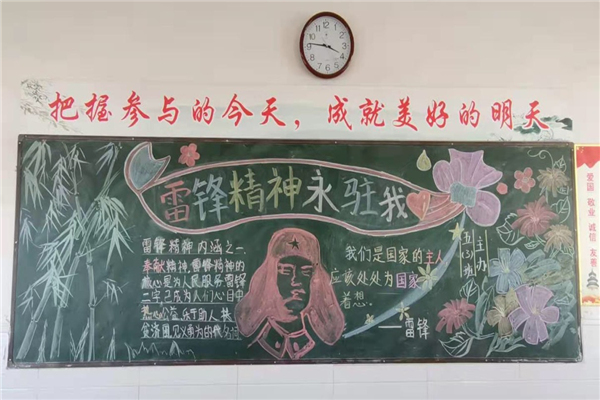 把握参与的今天，成就美好的明天
雷锋精神永驻我
雷锋精神内涵之一
奉献精神,雷锋精神的
核心是为人民服务雷锋
二字已成为人们心目中
热心公益 乐于助人 扶
贫济困 见义勇为的代名词
我们是国家的主人
应该处处为国家
着想。
——雷锋
主办
五(3)班
爱国 敬业 诚信 友善